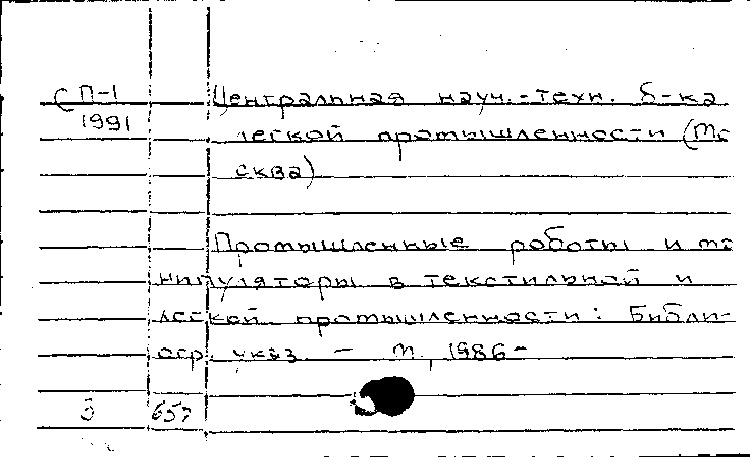 СП-1 Центральная науч.-техн. б-ка
1991 легкой промышленности (Мо
сква)
Промышленные роботы и ма
нипуляторы в текстильной и
легкой промышленности: Библи-
огр. указ. – М., 1986-
657